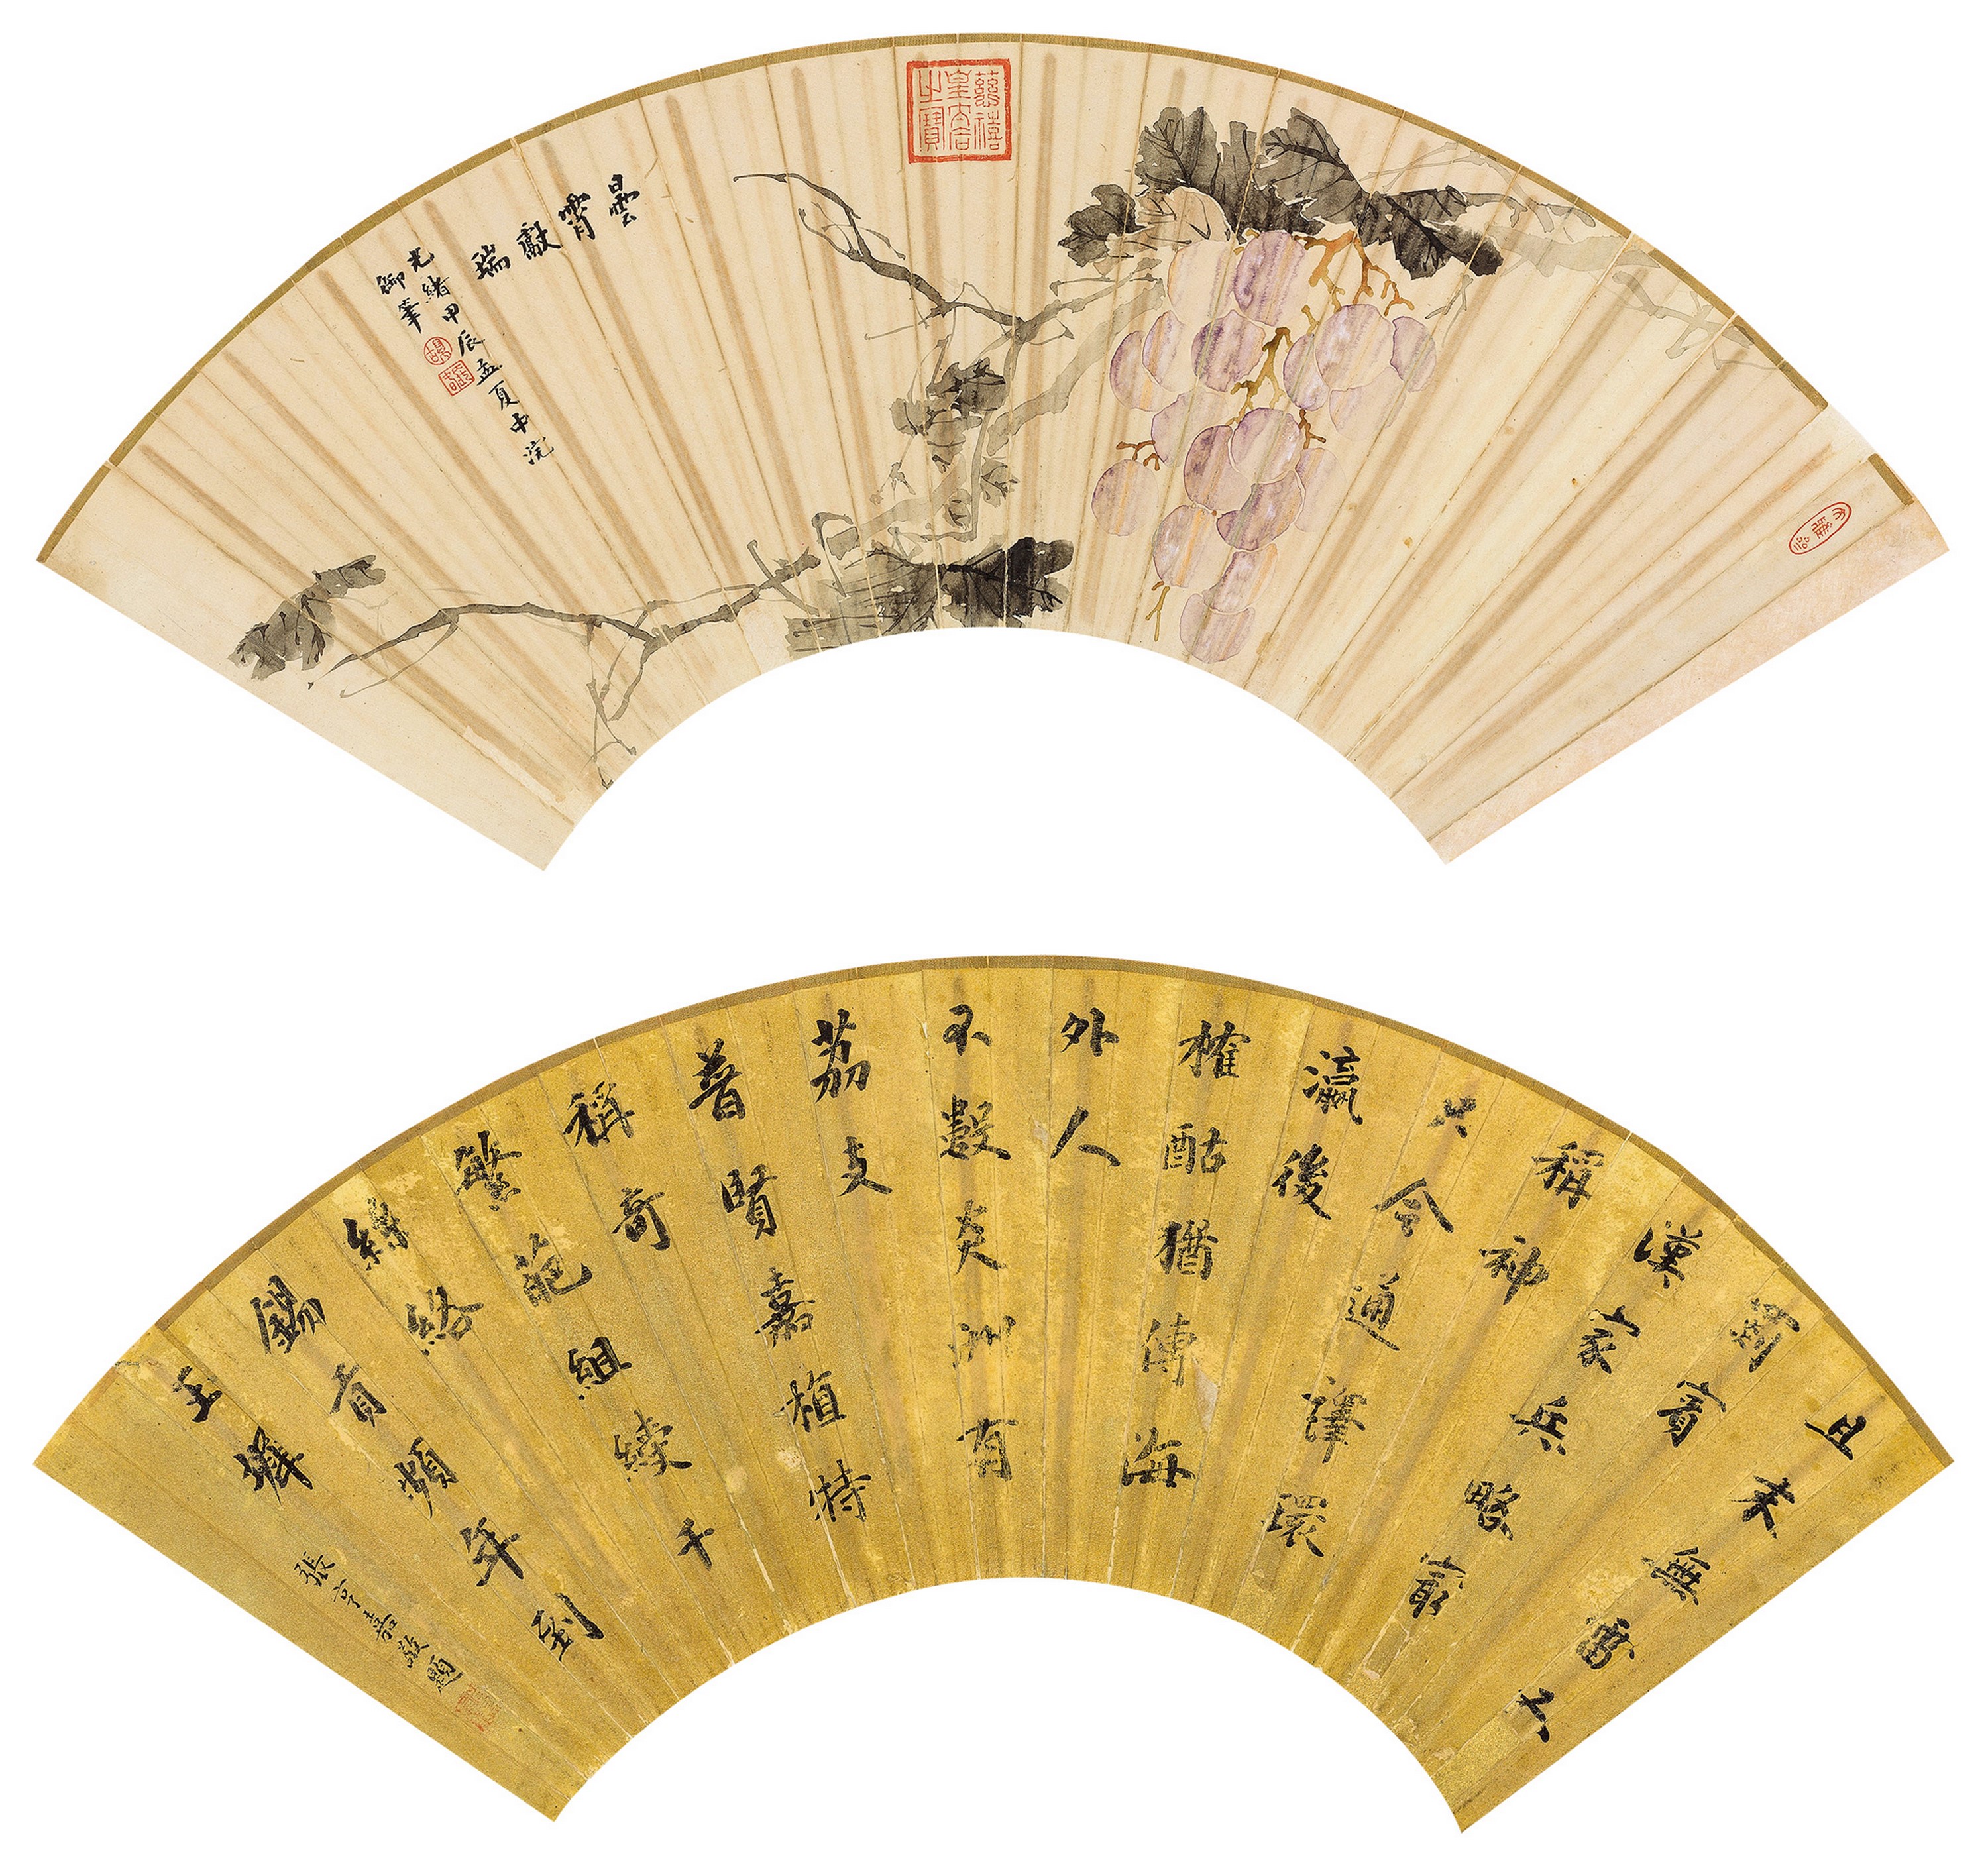 慈禧皇太后之寶
曇霄獻瑞
光緒甲辰孟夏中浣
御筆
大雅齋
且末無雷大
罽賓
漢家兵略㝡
稱神
只今通譯環
瀛後
榷酤猶傳海
外人
不數炎洲有
荔支
普賢嘉植特
稱奇
繁葩組續千
絲絡
錫貢頻年到
玉墀
張亨嘉敬題